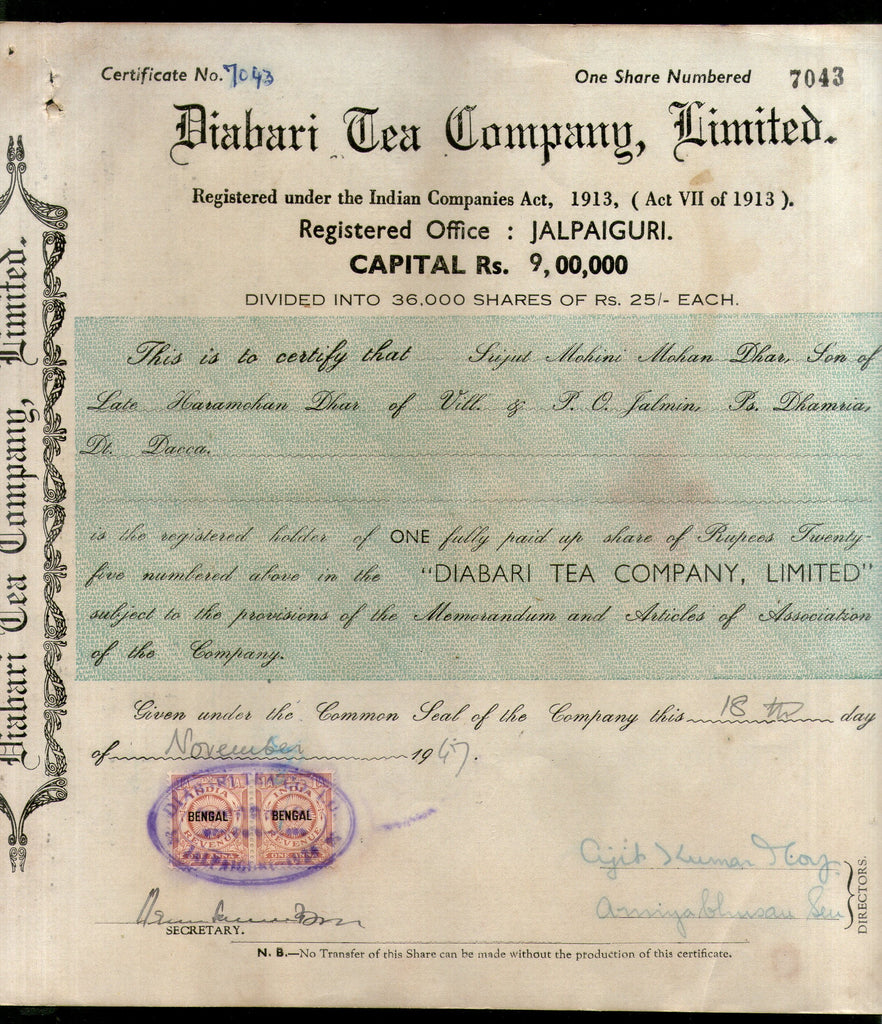 Certificate No. 7043
One Share Numbered 7043
Diabari Tea Company, Limited.
Registered under the Indian Companies Act, 1913, ( Act VII of 1913 ).
Registered Office : JALPAIGURI.
CAPITAL Rs. 9,00,000
DIVIDED INTO 36,000 SHARES OF Rs. 25/- EACH.
This is to certify that Srijut Mohini Mohan Dhar, Son of
Late Haramohan Dhar of Vill. & P. O. Jalmin, Ps. Dhamria,
Dt. Dacca.
is the registered holder of ONE fully paid up share of Rupees Twenty-
five numbered above in the "DIABARI TEA COMPANY, LIMITED"
subject to the provisions of the Memorandum and Articles of Association
of the Company.
Given under the Common Seal of the Company this 18 th day
of November 19
INDIA INDIA
BENGAL BENGAL
REVENUE REVENUE
Ajit Kumar
Amiyabhusan Sen
DIRECTORS.
SECRETARY.
N. B.—No Transfer of this Share can be made without the production of this certificate.
Diabari Tea Company, Limited.